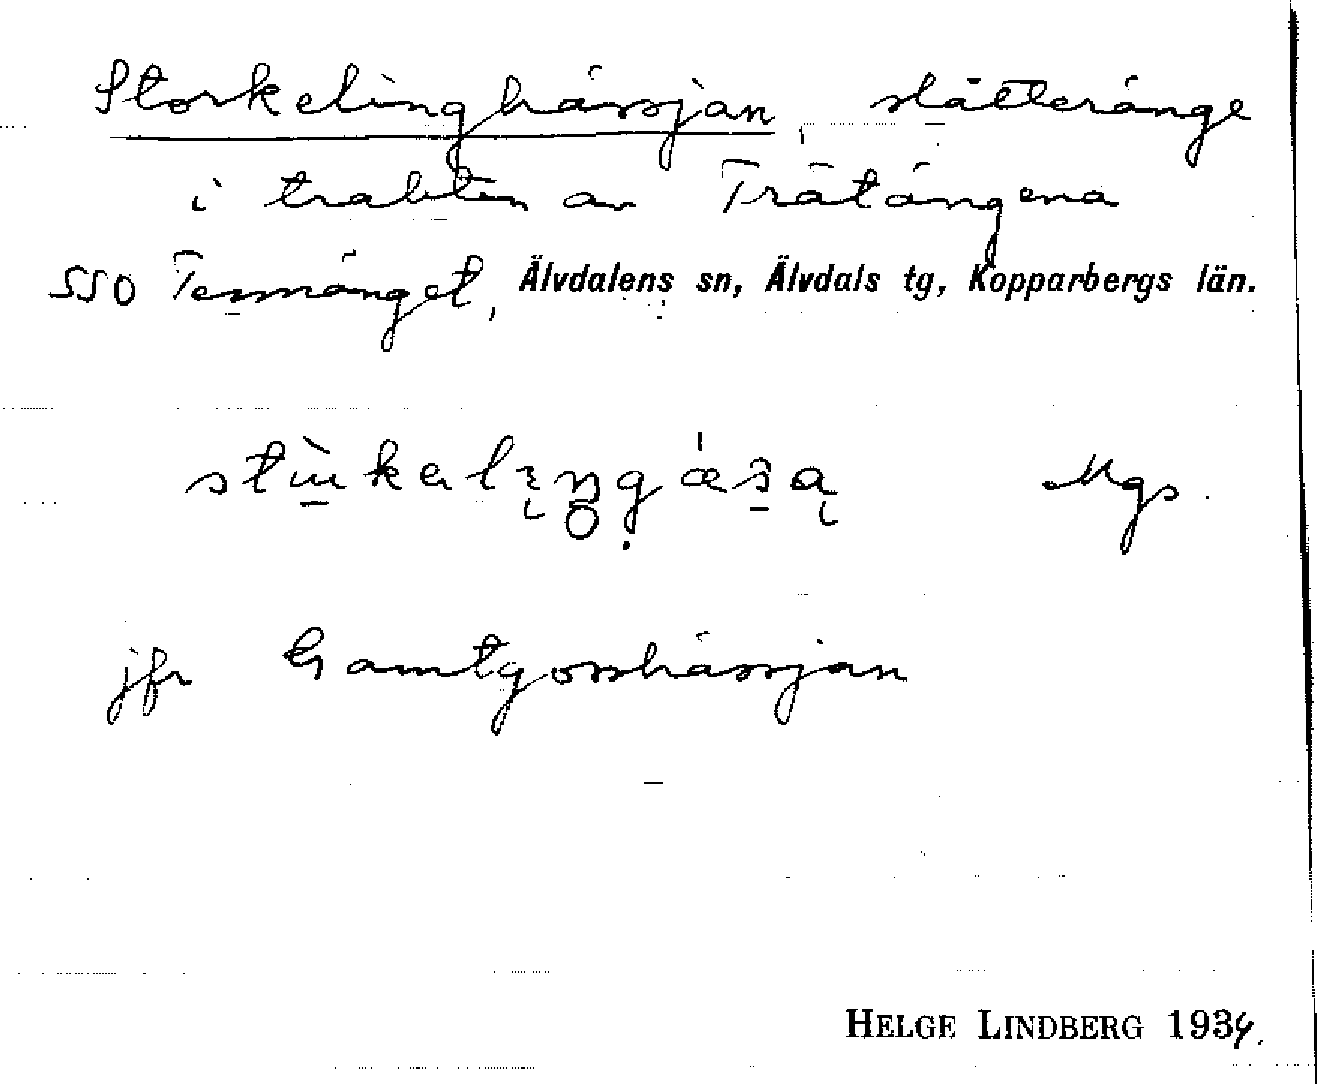 Storkelinghässjan, slåtteränge
i trakten av Trätängena
SSO Tennänget, Älvdalens sn, Älvdals tg, Kopparbergs län.
Mgs
jfr Gamtgosshässjan
HELGE LINDBERG 1934.